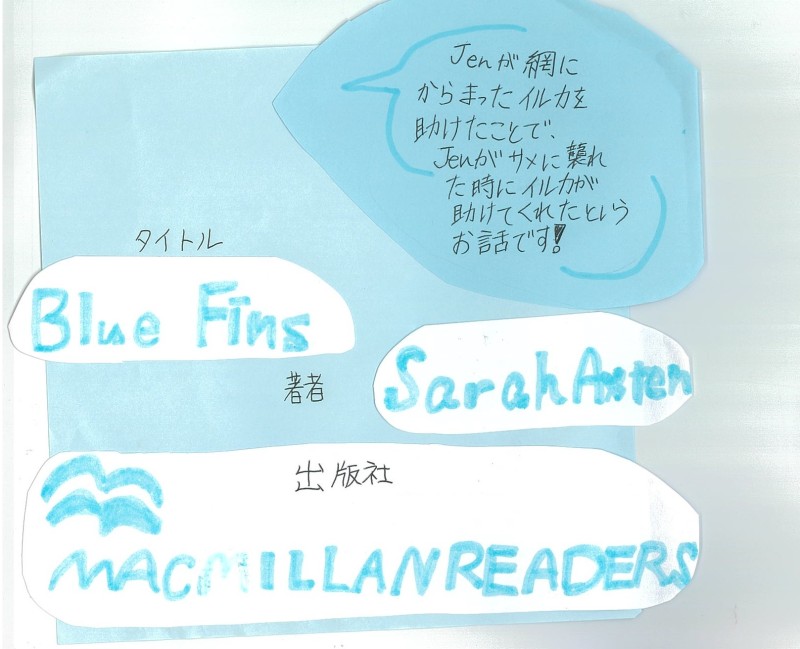 Jenが網に
からまったイルカを
助けたことで、
Jenがサメに襲れ
た時にイルカが
助けてくれたという
お話です!
タイトル
Blue Fins
著者
Sarah Axten
出版社
MACMILLAN READERS